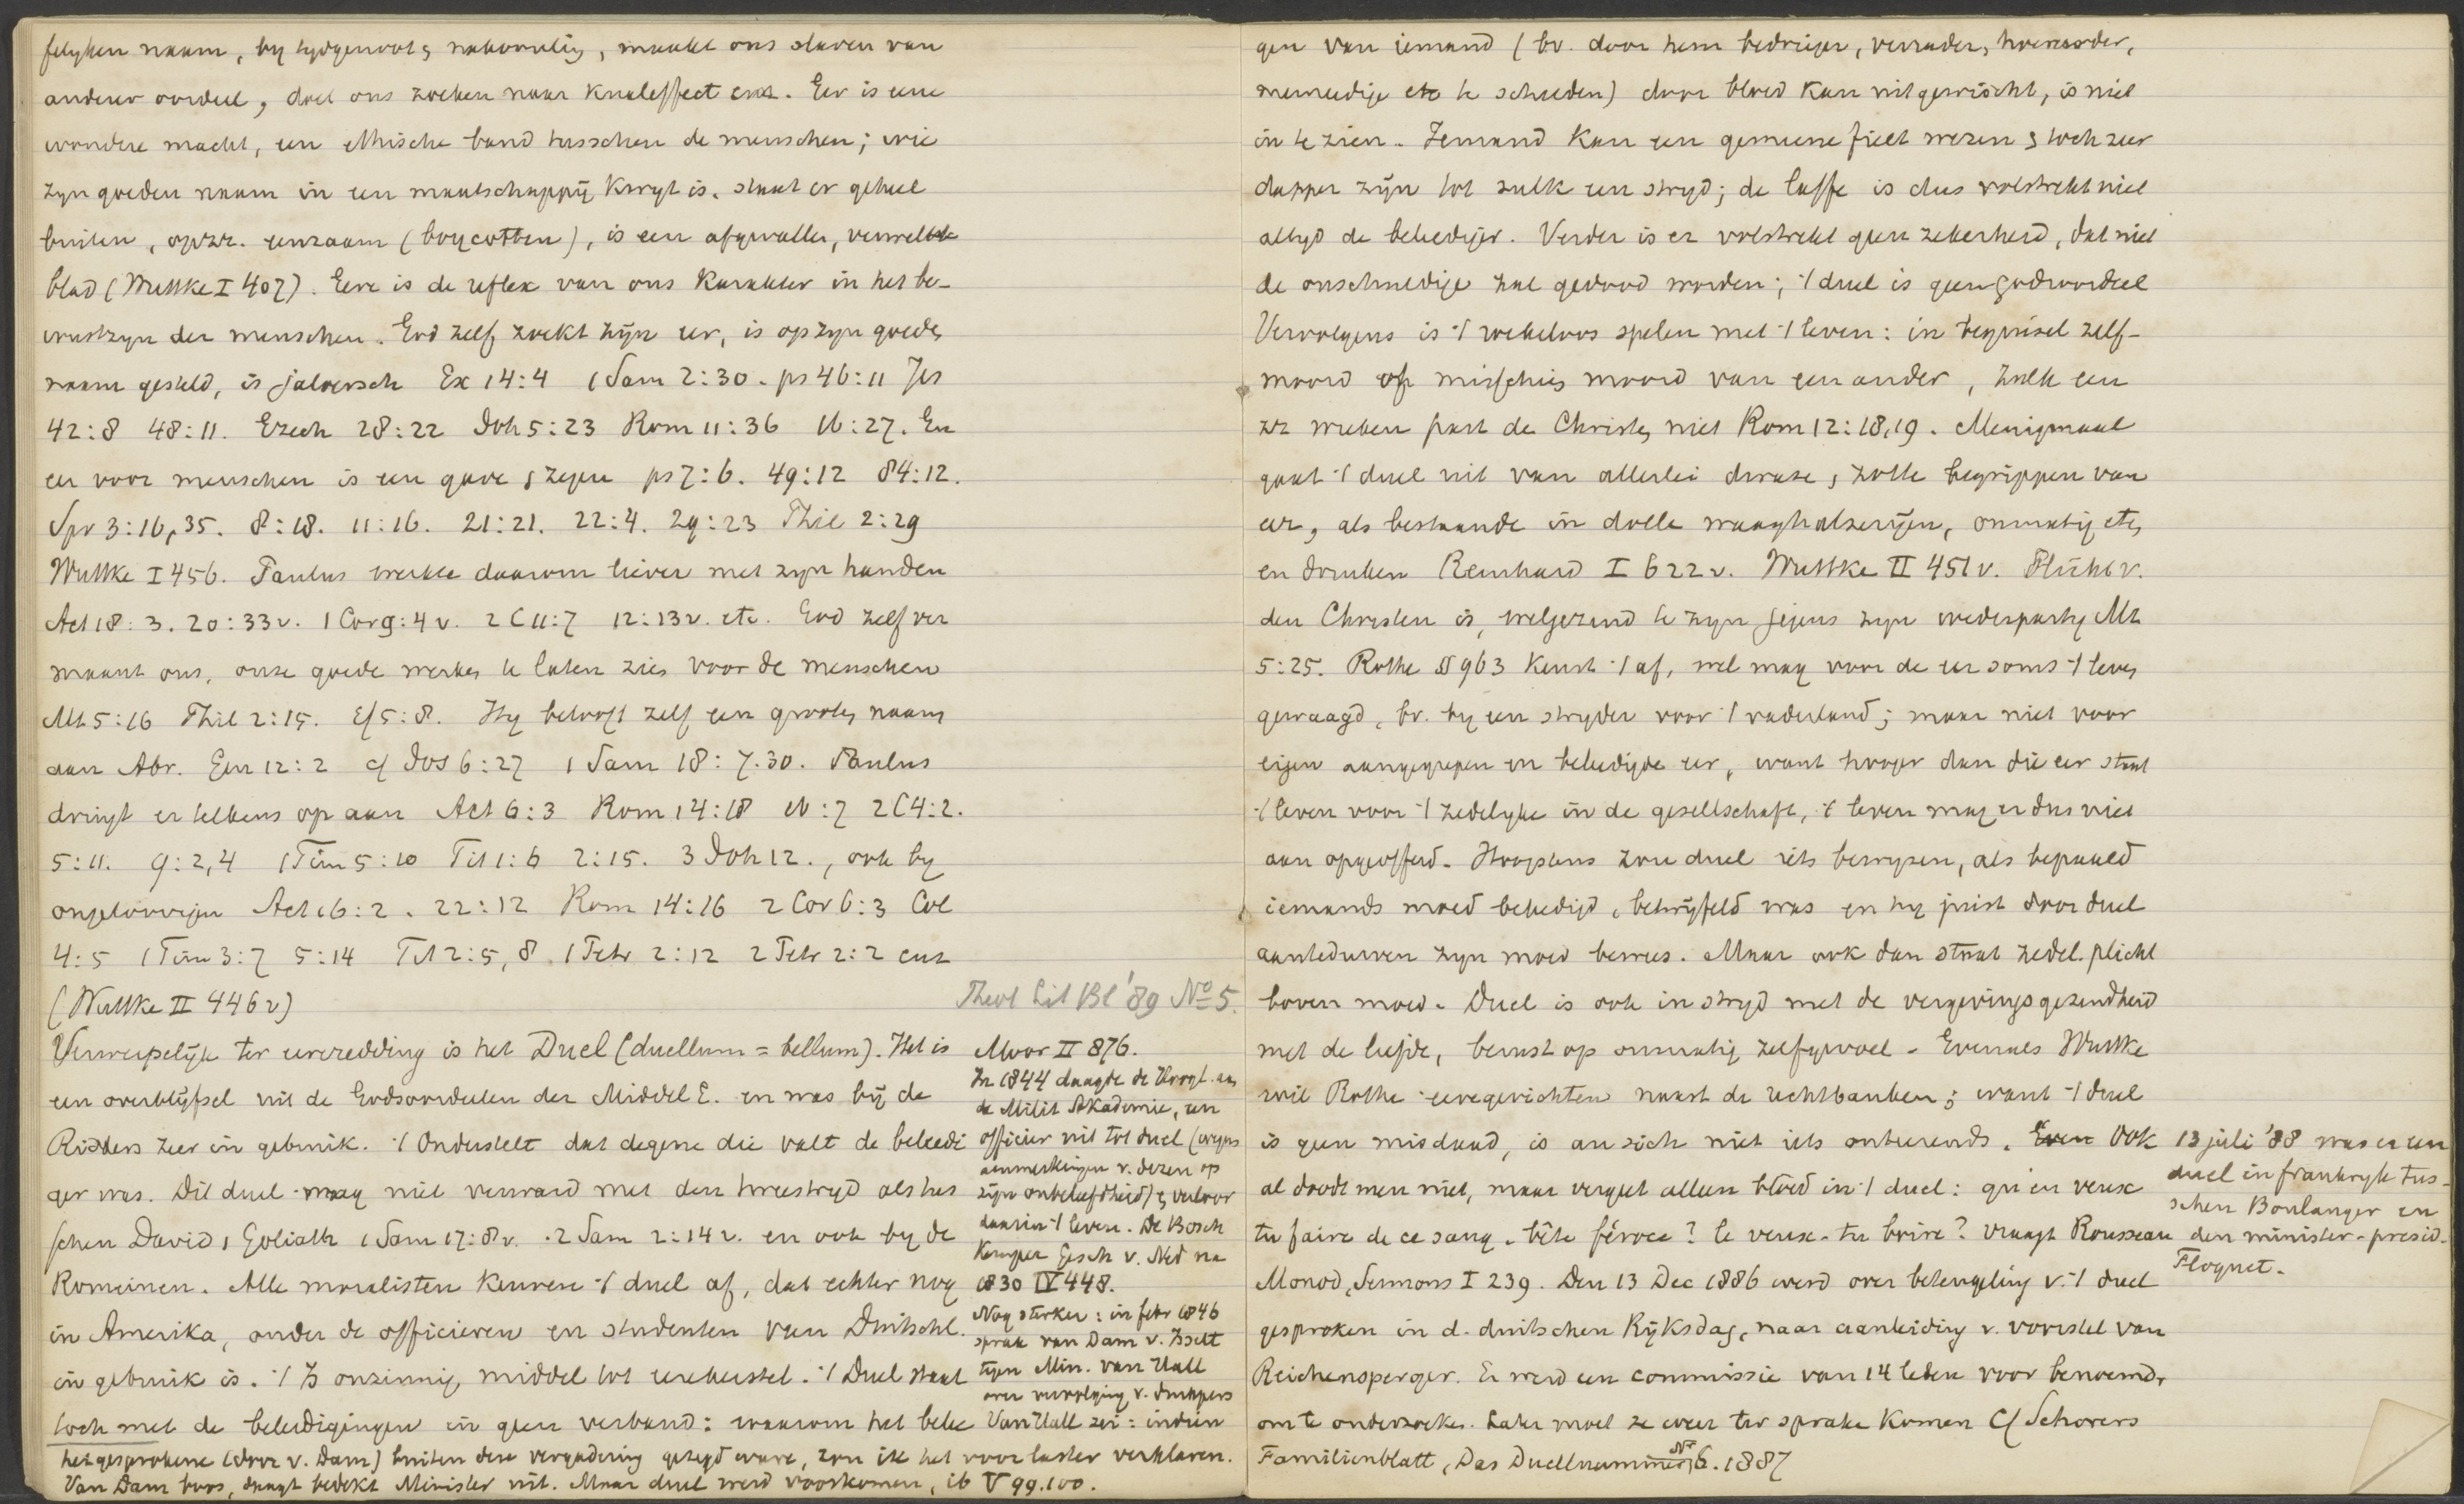 felyken naam, by tydgenoot, nakomeling, maakt ons slaven van
anderer oordeel, doet ons zoeken naar knaleffect enz. Eer is eene
wondere macht, een ethische band tusschen de menschen; wie
zyn goeden naam in een maatschappij kwyt is, staat er geheel
buiten, opzz. eenzaam (boycotten), is een afgevallen, verwelkte
blad (Wuttke I 407). Eere is de reflex van ons karakter in het be-
wustzyn der menschen. God zelf zoekt zijn eer, is op zyn goeden
naam gesteld, is jaloersch Ex 14:4 1 Sam 2:30. ps 46:11 Jes
42:8 48:11. Ezech 28:22 Joh 5:23 Rom 11:36 16:27. En
eer voor menschen is een gave, zegen ps 7:6. 49:12 84:12.
Spr 3:16,35. 8:18. 11:16. 21:21. 22:4. 29:23 Phil 2:29
Wuttke I 456. Paulus werkte daarom liever met zyn handen
Act 18:3. 20:33v. 1 Cor 9:4v. 2 C 11:7 12:13v. etc. God zelf ver
maant ons, onze goede werken te laten zien voor de menschen
Mt 5:16 Phil 2:15. Ef 5:8. Hy belooft zelf een grooten naam
aan Abr. Gen 12:2 cf Jos 6:27 1 Sam 18:7.30. Paulus
dringt er telkens op aan Act 6:3 Rom 14:18 16:7 2 C 4:2.
5:11. 9:2,4 1 Tim 5:10 Tit 1:6 2:15. 3 Joh 12., ook by
ongeloovigen Act 16:2. 22:12 Rom 14:16 2 Cor 6:3 Col
4:5 1 Tim 3:7 5:14 Tit 2:5,8. 1 Petr 2:12 2 Petr 2:2 enz
(Wuttke II 446v)
Theol Lit Bl '89 No 5.
Verwerpelijk ter eereredding is het Duel (duellum = bellum). Het is
een overblijfsel uit de Godsoordeelen der Middel E. en was bij de
Ridders zeer in gebruik. 't Onderstelt dat degene die valt de beleedi
ger was. Dit duel mag niet verward met den tweestryd als tus
schen David, Goliath 1 Sam 17:8v. 2 Sam 2:14v. en ook by de
Romeinen. Alle moralisten keuren 't duel af, dat echter nog
in Amerika, onder de officieren en studenten van Duitschl.
in gebruik is. 't Is onzinnig middel tot eerherstel. 't Duel staat
toch met de beleedigingen in geen verband: waarom het belee
Moor II 876.
In 1844 daagde de Hoogl. aan
de Milit Akademie, een
officier uit tot duel (wegens
aanmerkingen v. dezen op
zijn onbeleefdheid), verloor
daarin 't leven. De Bosch
Kemper Gesch v. Ned na
1830 IV 448.
Nog sterker: in febr 1846
sprak van Dam v. Isselt
tegen Min. van Hall
over vervolging v. drukpers
Van Hall zei: indien
het gesprokene (door v. Dam) buiten deze vergadering gezegd ware, zou ik het voor laster verklaren.
Van Dam boos, daagt bedekt Minister uit. Maar duel werd voorkomen, ib V 99.100.
gen van iemand (bv. door hem bedrieger, verrader, hoereerder,
meineedige etc te schelden) door bloed kan uitgewischt, is niet
in te zien. Iemand kan een gemeene fielt wezen, toch zeer
dapper zijn tot zulk een stryd; de laffe is dus volstrekt niet
altyd de beleediger. Verder is er volstrekt geen zekerheid, dat niet
de onschuldige zal gedood worden; 't duel is geen godsoordeel
Vervolgens is 't roekeloos spelen met 't leven: in beginsel zelf-
moord of misschien moord van een ander, zulk een
zz wreken past den Christen niet Rom 12:18,19. Menigmaal
gaat 't duel uit van allerlei dwaze, zotte begrippen van
eer, als bestaande in dolle waaghalzerijen, onmatig eten
en drinken Reinhard I 622v. Wuttke II 451v. Plicht v.
den Christen is, welgezind te zyn jegens zyn wederparty Mt
5:25. Rothe § 963 keurt 't af, wel mag voor de eer soms 't leven
gewaagd, bv. by een stryder voor 't vaderland; maar niet voor
eigen aangegrepen en beleedigde eer, want hooger dan die eer staat
't leven voor 't zedelyke in de gesellschaft, 't leven mag er dus niet
aan opgeofferd. Hoogstens zou duel iets bewyzen, als bepaald
iemands moed beleedigd, betwijfeld was en hy juist door duel
aantedurven zyn moed bewees. Maar ook dan staat zedel. plicht
boven moed. Duel is ook in stryd met de vergevingsgezindheid
met de liefde, berust op onmatig zelfgevoel. Evenals Wuttke
wil Rothe eeregerichten naast de rechtbanken; want 't duel
is geen misdaad, is an sich niet iets onteerends. Even Ook
al doodt men niet, maar vergiet alleen bloed in 't duel: qu'en veux
tu faire de ce sang, bête féroce? le veux-tu boire? vraagt Rousseau
Monod, Sermons I 239. Den 13 Dec 1886 werd over beteugeling v. 't duel
gesproken in d. duitschen Rijksdag, naar aanleiding v. voorstel van
Reichensperger. Er werd een commissie van 14 leden voor benoemd,
om te onderzoeken. Later moet ze weer ter sprake komen Cf Schorers
Familienblatt, Das Duellnummer, No 6. 1887
13 juli '88 was er een
duel in frankryk tus-
schen Boulanger en
den minister-presid.
Floquet.